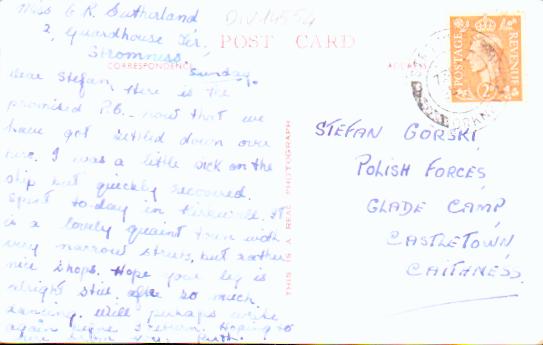 Miss G. R. Sutherland
DIV14554
2, Guardhouse Ter,
Stromness
POST CARD
CORRESPONDENCE
ADDRESS
POSTAGE
REVENUE
2D
Sunday
Dear Stefan, Here is the
promised P.C. now that we
have got settled down over
here. I was a little sick on the
ship but quickly recovered.
Spent to-day in Kirkwall. It
is a lovely quaint town with
very narrow streets, but rather
nice shops. Hope your leg is
alright still, after so much
dancing. Will perhaps write
again before I return. Hoping to
hear from you
THIS IS A REAL PHOTOGRAPH
STEFAN GORSKI,
POLISH FORCES,
GLADE CAMP,
CASTLETOWN,
CAITHNESS.